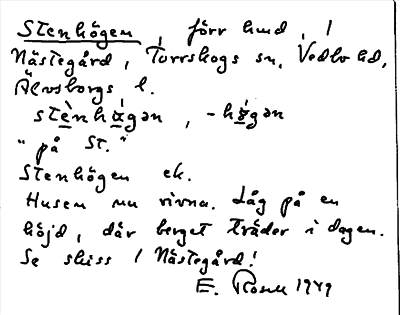 Stenhögen, förr hmd, /
Nästegård, Torrskogs sn, Vedbo hd,
Älvsborgs l.
stènhø̀gən, -hø̀gən
"på St."
Stenhögen ek.
Husen nu rivna. Låg på en
höjd, där berget träder i dagen.
Se skiss / Nästegård!
E. Rosell 1949